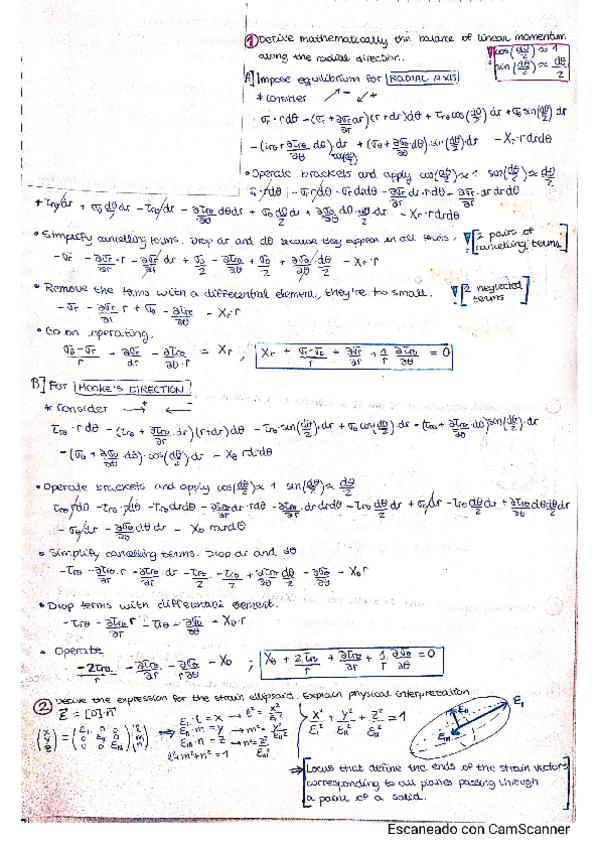 ① Derive mathematically the balance of linear momentum
along the radial direction.
cos(dθ/2) ≈ 1
sin(dθ/2) ≈ dθ/2
A] Impose equilibrium for RADIAL AXIS
* consider
σr · rdθ - (σr + ∂σr/∂r dr)(r+dr)dθ + τrθ cos(dθ/2) dr + σθ sin(dθ/2) dr
cos(dθ/2)
- Xr rdrdθ
• Operate brackets and apply cos(dθ/2) ≈ 1 sin(dθ/2) ≈ dθ/2
σr·rdθ - σr rdθ - σr drdθ - ∂σr/∂r dr·rdθ - ∂σr/∂r dr drdθ
+ τrθ dr + σθ dθ/2 dr - τrθ dr - ∂τrθ/∂θ dθdr + σθ dθ/2 dr + ∂σθ/∂θ dθ·dθ/2 dr - Xr·rdrdθ
• Simplify cancelling terms. Drop dr and dθ because they appear in all terms.
2 pairs of
cancelling terms
- σr - ∂σr/∂r · r - ∂σr/∂r dr + σθ/2 - ∂τrθ/∂θ + σθ/2 + ∂σθ/∂θ dθ/2 - Xr·r
• Remove the terms with a differential element, they're too small.
2 neglected
terms
- σr - ∂σr/∂r r + σθ - ∂τrθ/∂θ - Xr·r
• Go on operating.
σθ-σr/r - ∂σr/∂r - ∂τrθ/∂θ·r = Xr , Xr + σr-σθ/r + ∂σr/∂r + 1/r ∂τrθ/∂θ = 0
B] For HOOKE'S DIRECTION
* Consider
τrθ · rdθ - (τrθ + ∂τrθ/∂r dr)(r+dr)dθ - τrθ·sin(dθ/2)·dr + σθ cos(dθ/2)·dr - (τrθ + ∂τrθ/∂θ·dθ)sin(dθ/2)·dr
- (σθ + ∂σθ/∂θ dθ)·cos(dθ/2)dr - Xθ rd·dθ
• Operate brackets and apply cos(dθ/2) ≈ 1 sin(dθ/2) ≈ dθ/2
τrθ rdθ - τrθ·rdθ - τrθ drdθ - ∂τrθ/∂r dr·rdθ - ∂τrθ/∂r dr drdθ - τrθ dθ/2 dr + σθ dr - τrθ dθ/2 dr + ∂τrθ/∂θ dθ dθ/2 dr
- σθ dr - ∂σθ/∂θ dθ dr - Xθ
• Simplify cancelling terms. Drop dr and dθ
- τrθ - ∂τrθ/∂r · r - ∂τrθ/∂r dr - τrθ/2 - τrθ/2 + ∂τrθ/∂θ dθ/2 - ∂σθ/∂θ - Xθ r
• Drop terms with differential element.
- τrθ - ∂τrθ/∂r r - τrθ - ∂σθ/∂θ - Xθ·r
• Operate
-2τrθ/r - ∂τrθ/∂r - ∂σθ/r∂θ - Xθ ; Xθ + 2τrθ/r + ∂τrθ/∂r + 1/r ∂σθ/∂θ = 0
② Derive the expression for the strain ellipsoid. Explain physical interpretation
ε = [D]·n
εI·l = x → l² = x²/εI²
εII·m = y → m² = y²/εII²
εIII·n = z → n² = z²/εIII²
l²+m²+n² = 1
x²/εI² + y²/εII² + z²/εIII² = 1
εI
εII
εIII
⇒ Locus that define the ends of the strain vectors
corresponding to all planes passing through
a point of a solid.
Escaneado con CamScanner